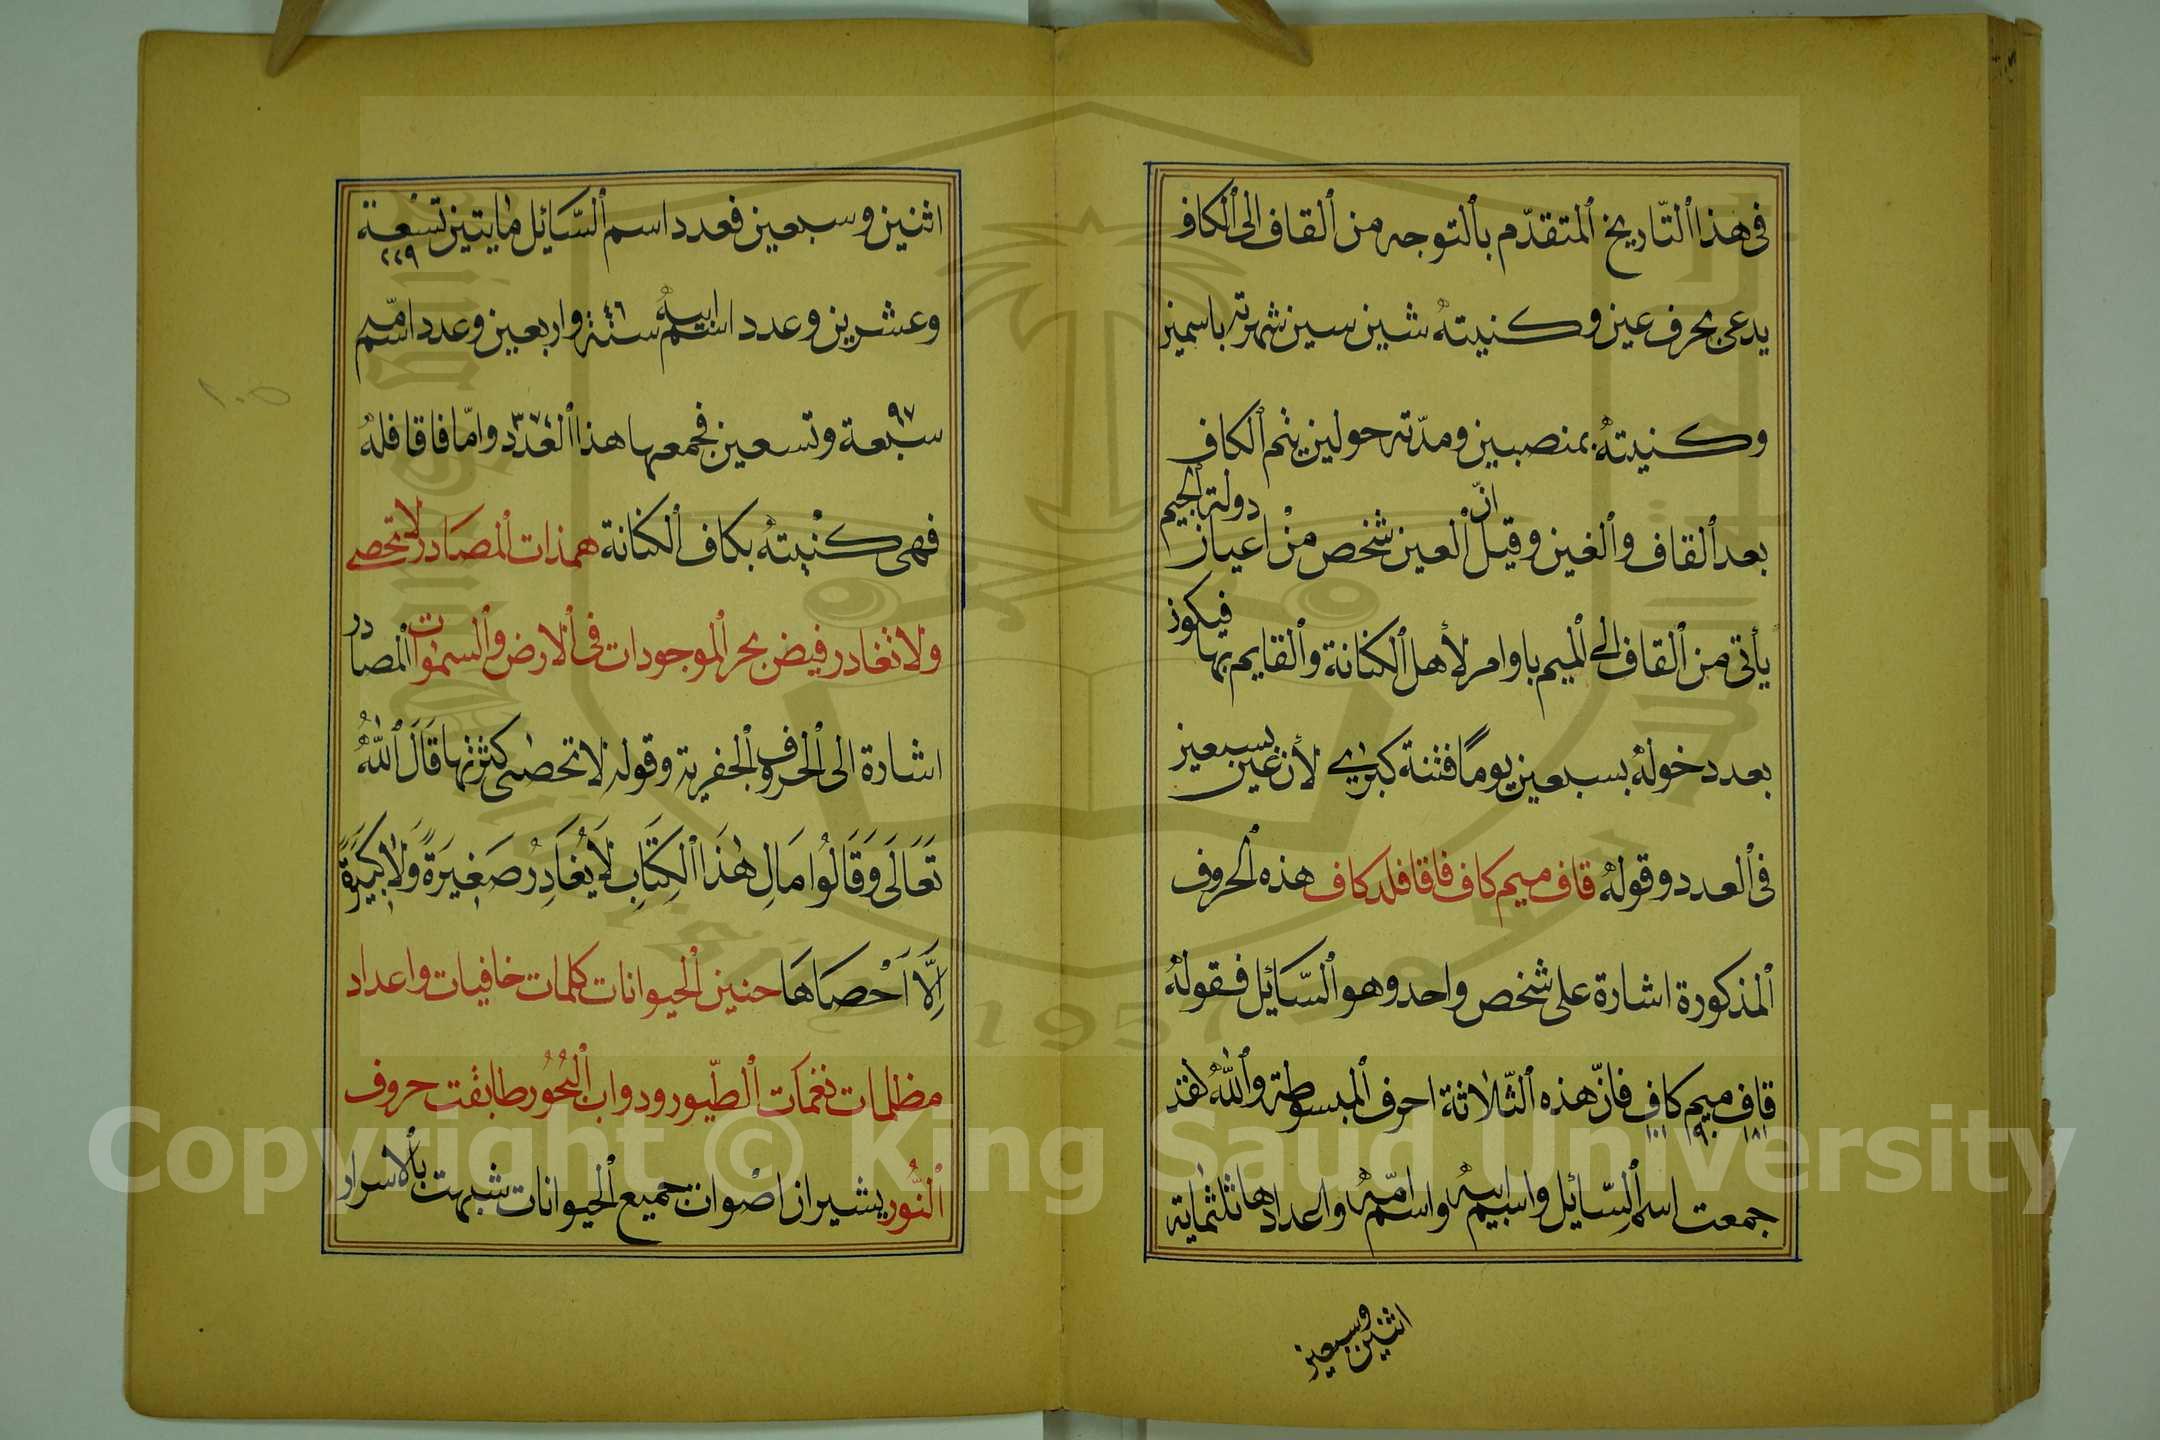 فى هذا التاريخ المتقدّم بالتوجه من القاف الى الكاف
يدعى بحرف عين وكنيته شين سين شهرته باسمين
وكنيته بمنصبين ومدّته حولين يثم الكاف
بعد القاف والغين وقيل انّ العين شخص من اعيان دولة الجيم
يأتى من القاف الى الميم باوامر لأهل الكنانة والقايم بها فيكون
بعد دخوله بسبعين يومًا فتنة كبرى لأن عين بسبعين
فى العدد وقوله قاف ميم كاف فاقا فلد كاف هذه الحروف
المذكورة اشارة على شخص واحد وهو السّائل فقوله
قاف ميم كاف فانّ هذه الثّلاثة احرف المبسوطة والله لقد
١٨١ ٩٠ ١٠١
جمعت اسم السّائل واسم ابيه واسم امّه واعدادها ثلثماية
اثنين وسبعين
اثنين وسبعين فعدد اسم السّائل مايتين تسعة
٢٢٩
وعشرين وعدد اسم ابيه ستة ٤٦ واربعين وعدد اسم امّه
سبعة ٩٧ وتسعين فجمعها هذا العدد ٣٧٢ وامّا فاقا فله
فهى كنيته بكاف الكنانة همذات المصادر لا تحصى
ولا تغادر فيض بحر الموجودات فى الارض والسموات المصادر
اشارة الى الحروف الجفرية وقوله لا تحصى كثرتها قَالَ اللهُ
تَعَالَى وَقَالُوا مَالِ هٰذَا الْكِتَابِ لَا يُغَادِرُ صَغِيرَةً وَلَا كَبِيرَةً
اِلَّا اَحْصَاهَا حنين الحيوانات كلمات خافيات واعداد
مظلمات نغمات الطّيور ودواب البُحُور طابقت حروف
النُّور يشير ان اصوات جميع الحيوانات شبهت بالاسرار
١٠٥
Copyright © King Saud University
1957